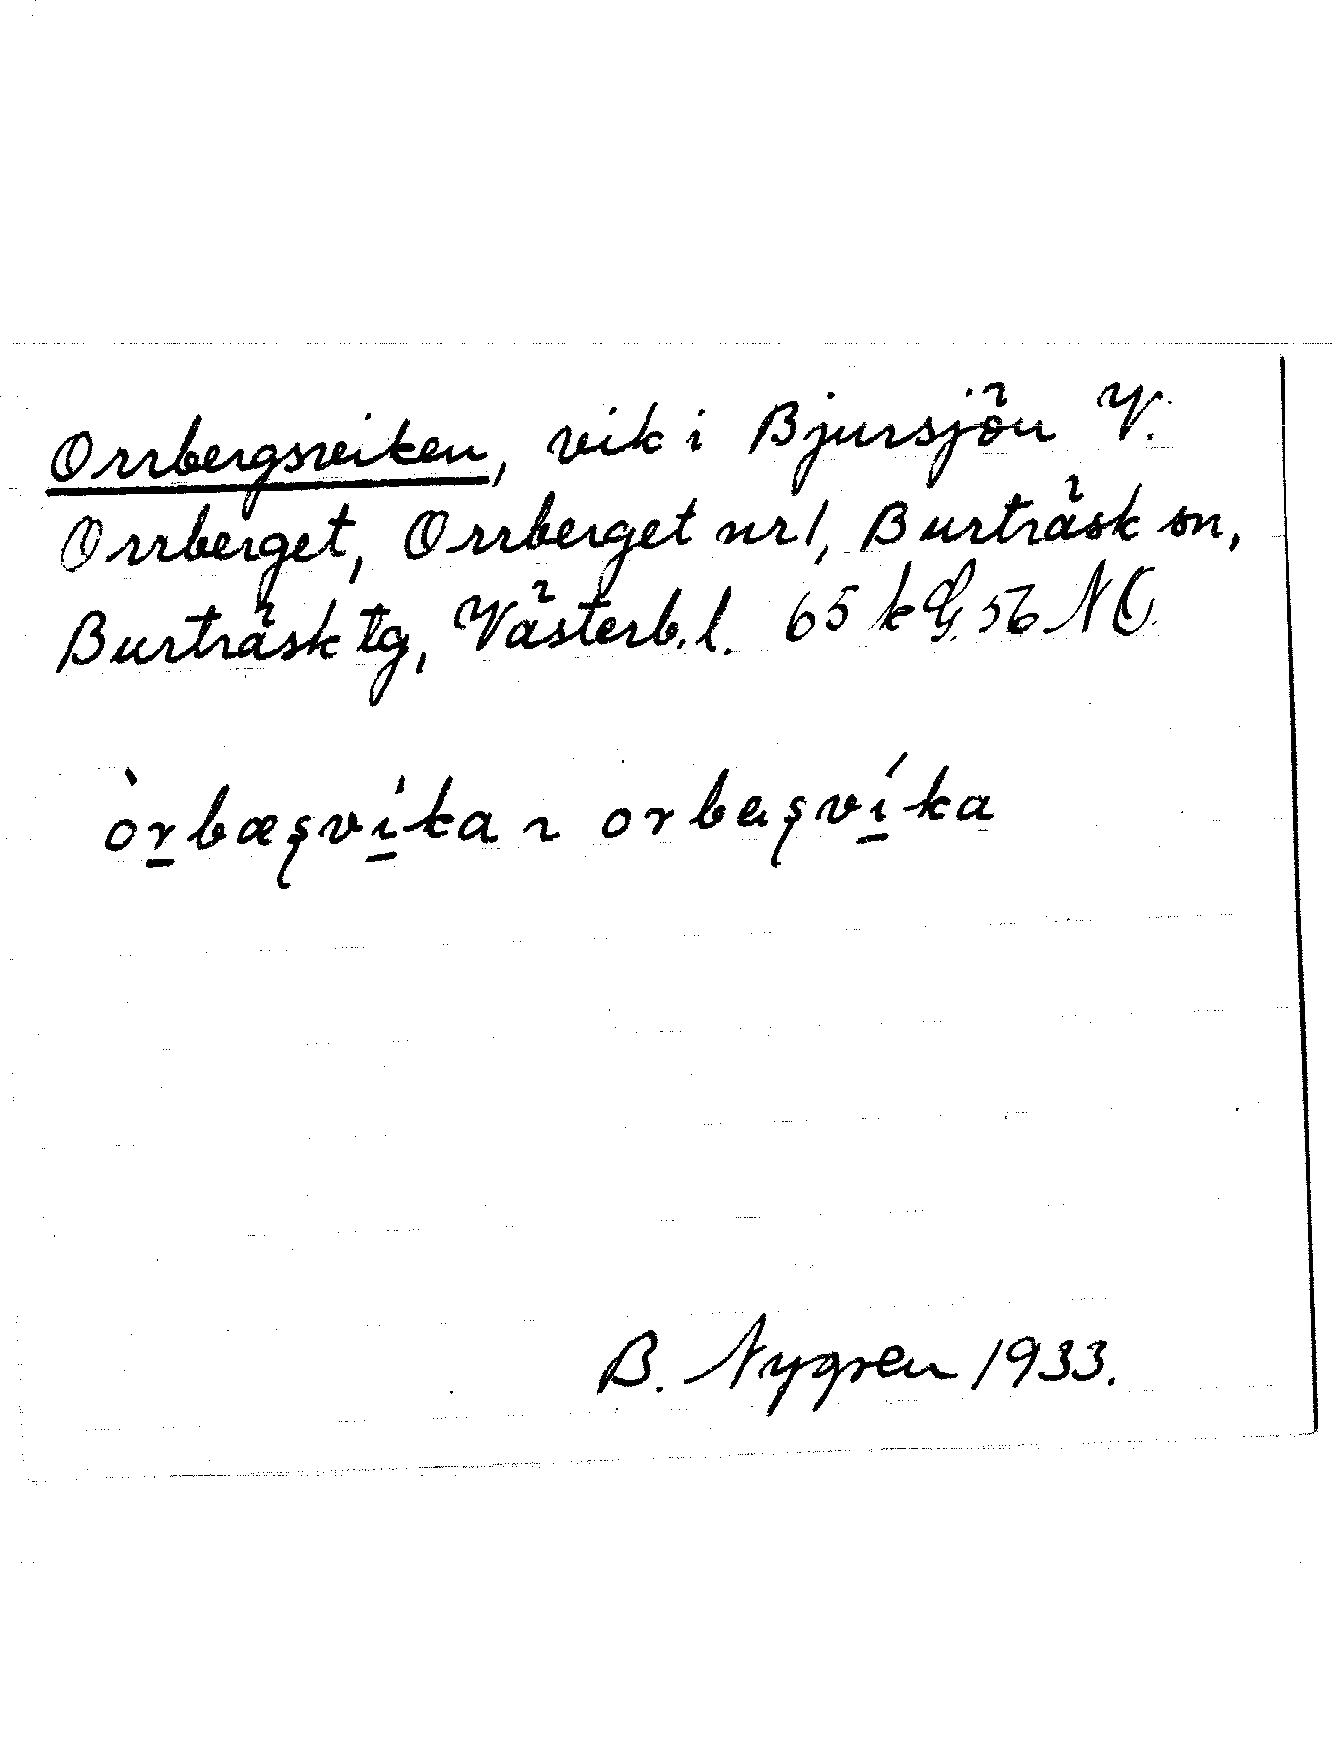 Orrbergsviken, vik i Bjursjön V.
Orrberget, Orrberget nr 1, Burträsk sn,
Burträsk tg, Västerb. l. 65 k G. 56 NO
òrbæşvíka ~ orbaşvíka
B. Nygren 1933.